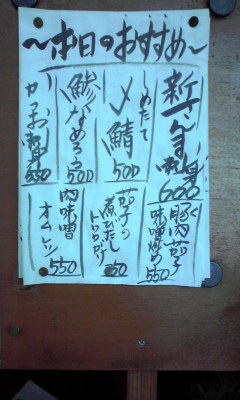 〜本日のおすすめ〜
新さんま刺身
600
しめたて
〆鯖
500
鯵なめろう
500
カツオ刺身
550
豚肉と茄子
味噌炒め
550
茄子の
煮びたし
トロロがけ
350
肉味噌
オムレツ
550